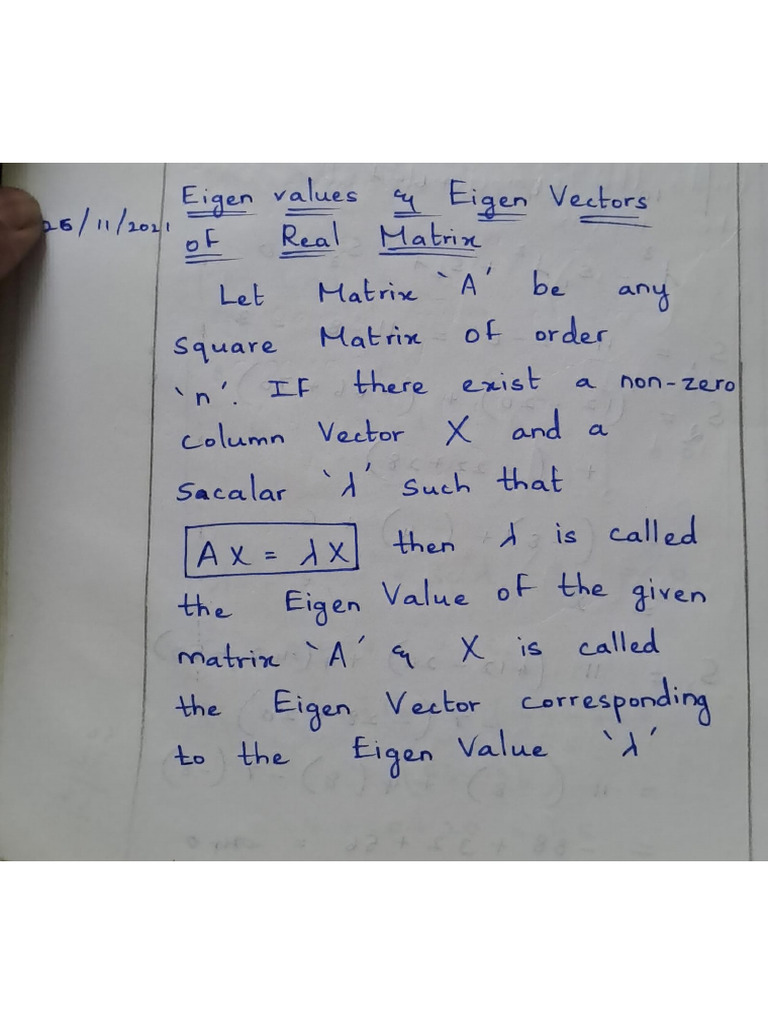 Eigen values & Eigen Vectors
26/11/2021
of Real Matrix
Let Matrix `A' be any
square Matrix of order
`n'. If there exist a non-zero
column Vector X and a
Sacalar `λ' such that
AX = λX then λ is called
the Eigen Value of the given
matrix `A' & X is called
the Eigen Vector corresponding
to the Eigen Value `λ'